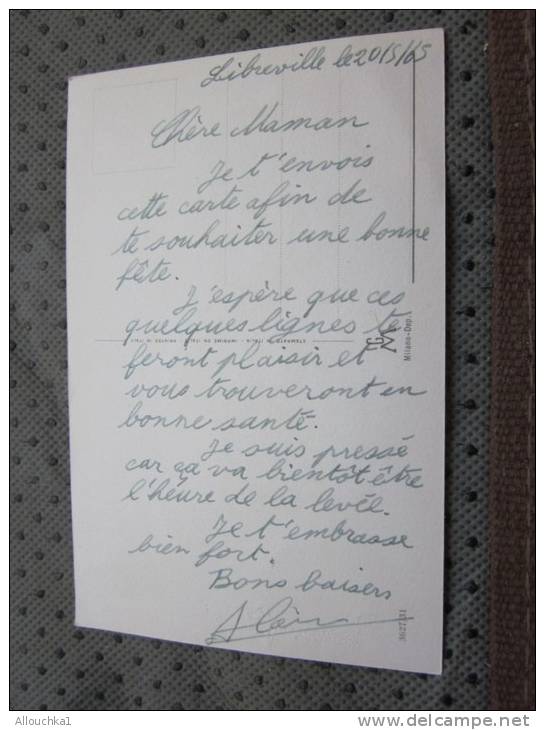 Libreville le 20/5/65
Chère Maman
Je t'envois
cette carte afin de
te souhaiter une bonne
fête.
J'espère que ces
quelques lignes te
feront plaisir et
vous trouveront en
bonne santé.
Je suis pressé
car ça va bientôt être
l'héure de la levée.
Je t'embrasse
bien fort.
Bons baisers
Milano-Dep.
3627/31
Allouchka1
http://www.delcampe.net